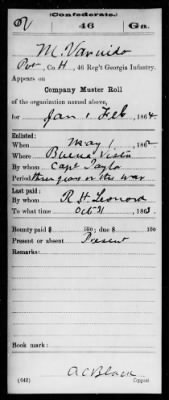 (Confederate.)
V 46 Ga.
M. Varnido
Pvt, Co. H, 46 Reg't Georgia Infantry.
Appears on
Company Muster Roll
of the organization named above,
for Jan & Feb, 1864
Enlisted:
When May 1, 186
Where Buena Vista
By whom Capt Taylor
Period three years or the war
Last paid:
By whom R. H. Leonard
To what time Oct 31, 1863.
Bounty paid $ 100; due $ 100
Present or absent Present
Remarks:
Book mark:
A C Black
(642) Copyist.